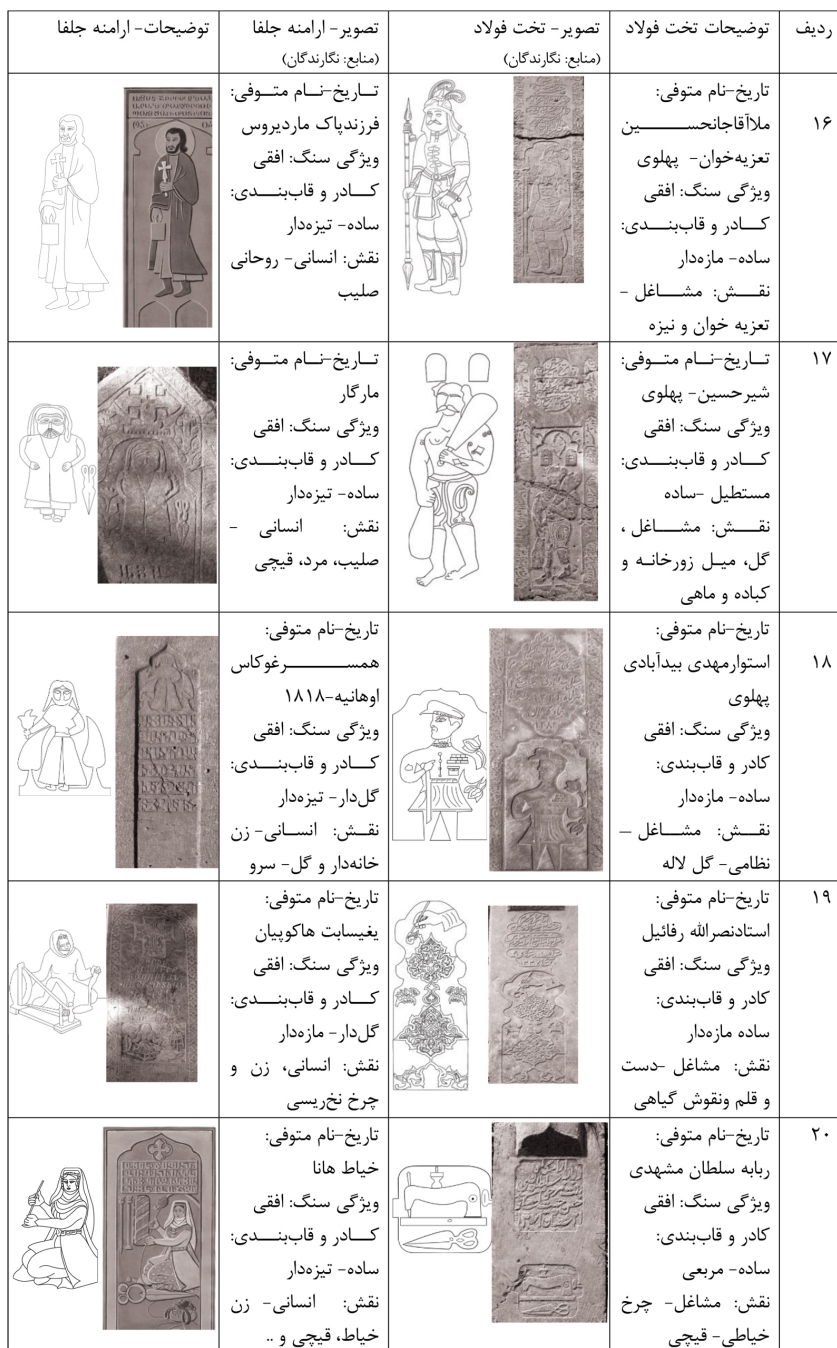 ردیف
توضیحات تخت فولاد
تصویر- تخت فولاد
(منابع: نگارندگان)
تصویر- ارامنه جلفا
(منابع: نگارندگان)
توضیحات- ارامنه جلفا
۱۶
تاریخ-نام متوفی:
ملاآقاجانحسین
تعزیه‌خوان- پهلوی
ویژگی سنگ: افقی
کادر و قاب‌بندی:
ساده- مازه‌دار
نقش: مشاغل -
تعزیه خوان و نیزه
تاریخ-نام متوفی:
فرزندپاک ماردیروس
ویژگی سنگ: افقی
کادر و قاب‌بندی:
ساده- تیزه‌دار
نقش: انسانی- روحانی
صلیب
۱۷
تاریخ-نام متوفی:
شیرحسین- پهلوی
ویژگی سنگ: افقی
کادر و قاب‌بندی:
مستطیل -ساده
نقش: مشاغل ،
گل، میل زورخانه و
کباده و ماهی
تاریخ-نام متوفی:
مارگار
ویژگی سنگ: افقی
کادر و قاب‌بندی:
ساده- تیزه‌دار
نقش: انسانی -
صلیب، مرد، قیچی
۱۸
تاریخ-نام متوفی:
استوارمهدی بیدآبادی
پهلوی
ویژگی سنگ: افقی
کادر و قاب‌بندی:
ساده- مازه‌دار
نقش: مشاغل –
نظامی- گل لاله
تاریخ-نام متوفی:
همسرغوکاس
اوهانیه-۱۸۱۸
ویژگی سنگ: افقی
کادر و قاب‌بندی:
گل‌دار- تیزه‌دار
نقش: انسانی- زن
خانه‌دار و گل- سرو
۱۹
تاریخ-نام متوفی:
استادنصرالله رفائیل
ویژگی سنگ: افقی
کادر و قاب‌بندی:
ساده مازه‌دار
نقش: مشاغل -دست
و قلم ونقوش گیاهی
تاریخ-نام متوفی:
یغیسابت هاکوپیان
ویژگی سنگ: افقی
کادر و قاب‌بندی:
گل‌دار- مازه‌دار
نقش: انسانی، زن و
چرخ نخ‌ریسی
۲۰
تاریخ-نام متوفی:
ربابه سلطان مشهدی
ویژگی سنگ: افقی
کادر و قاب‌بندی:
ساده- مربعی
نقش: مشاغل- چرخ
خیاطی- قیچی
تاریخ-نام متوفی:
خیاط هانا
ویژگی سنگ: افقی
کادر و قاب‌بندی:
ساده- تیزه‌دار
نقش: انسانی- زن
خیاط، قیچی و ..